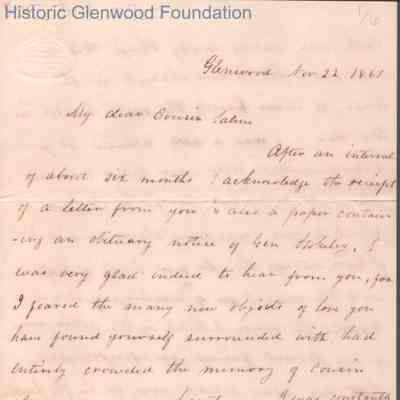 Historic Glenwood Foundation
1/6
Glenwood Nov 22 1861
My dear Cousin
After an interval
of about six months I acknowledge the receipt
of a letter from you & also a paper contain
-ing an obituary notice of Gen I
was very glad indeed to hear from you, for
I feared the many new objects of love you
have found yourself surrounded with had
entirely crowded the memory of Cousin
I was constantly